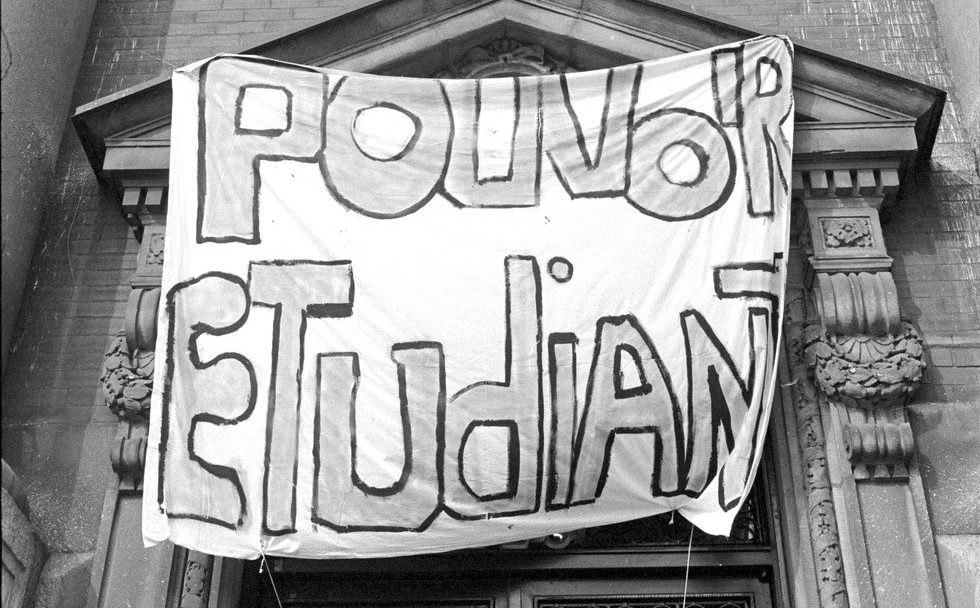 POUVOIR
ETUdiANT